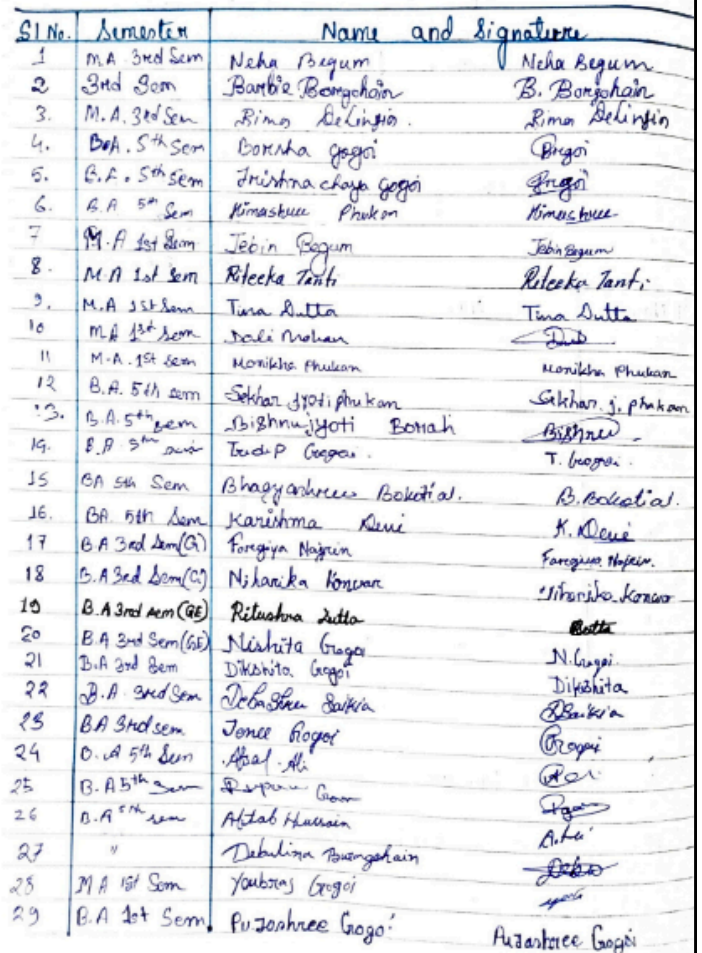 Sl No. Semester Name and Signature
1 M.A 3rd Sem Neha Begum Neha Begum
2 3rd Sem Barbie Borgohain B. Borgohain
3. M.A. 3rd Sem Rima Delingia. Rima Delingia
4. B.A. 5th Sem Borsha Gogoi Gogoi
5. B.A. 5th Sem Trishna chaya Gogoi Gogoi
6. B.A 5th Sem Himashree Phukan Himashree
7 M.A 1st Sem Jebin Begum Jebin Begum
8. M.A 1st Sem Riteeka Tanti Riteeka Tanti
9. M.A 1st Sem Tina Dutta Tina Dutta
10 M.A 1st Sem Dali Mohan
11 M.A. 1st Sem Monikha Phukan Monikha Phukan
12 B.A. 5th sem Sekhar Jyoti phukan Sekhar. j. phukan
13. B.A. 5th sem Bishnujyoti Borah Bishnu
14. B.A 5th Tridip Gogoi. T. Gogoi.
15 BA 5th Sem Bhagyashree Bokotial. B. Bokotial.
16. BA. 5th Sem Karishma Devi K. Devi
17 B.A 3rd Sem(G) Najrin
18 B.A 3rd Sem(G) Niharika Konwar Niharika Konwar
19 B.A 3rd sem (GE) Ritushna Dutta Dutta
20 B.A 3rd Sem (GE) Nishita Gogoi N. Gogoi.
21 B.A 3rd Sem Dikshita Gogoi Dikshita
22 B.A. 3rd Sem Debashree Saikia DSaikia
23 BA 3rd sem Jonee Gogoi Gogoi
24 B.A 5th Sem Afsal Ali
25 B.A 5th Sem
26 B.A 5th sem Aftab Hussain
27 " Debulina Buragohain
28 M A 1st Sem Youbraj Gogoi
29 B.A 1st Sem Pujashree Gogoi Pujashree Gogoi